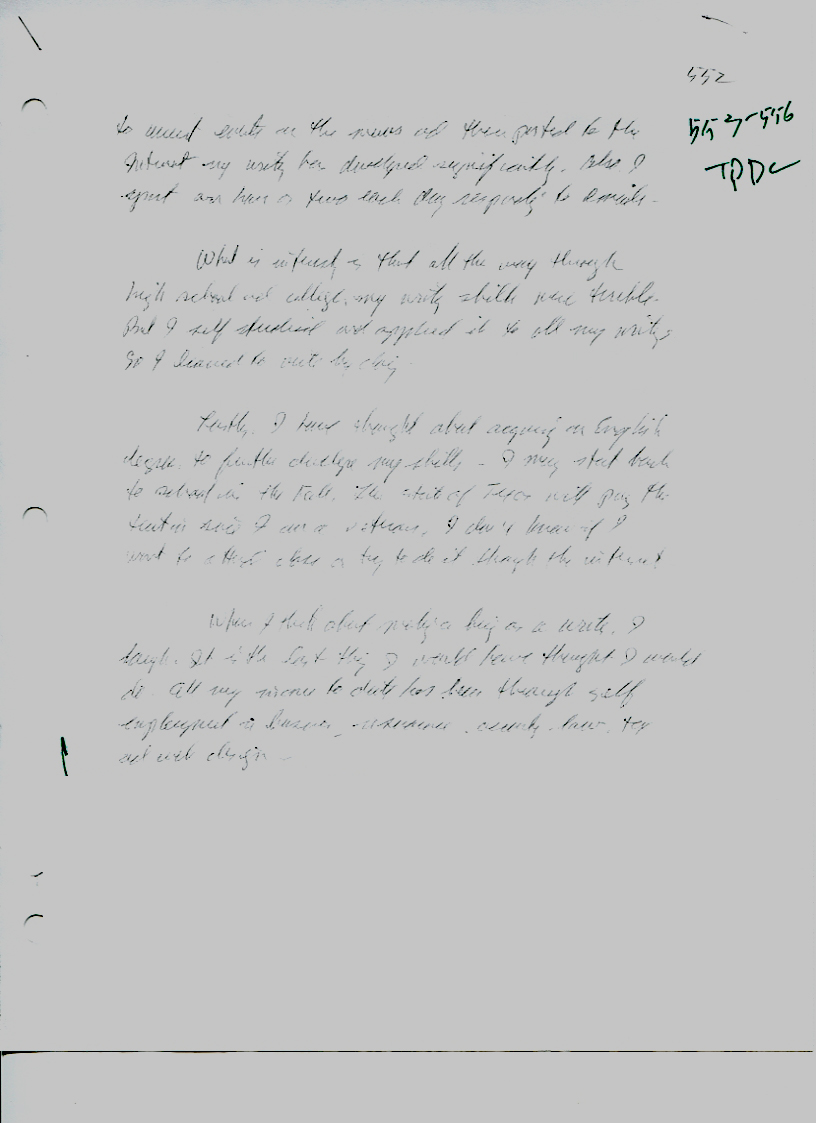 552
552-556
TPDC
to current events in the news and then posted to the
Internet my writing has developed significantly. Also I
spent an hour or two each day responding to emails.
What is interesting is that all the way through
high school and college, my writing skills were terrible.
But I self studied and applied it to all my writing
So I learned to write by doing.
Lastly, I have thought about acquiring an English
degree, to further develope my skills - I may start back
to school in the Fall. The state of Texas will pay the
tuition since I am a veteran. I don't know if I
want to attend class or try to do it through the internet
When I think about making a living as a writer, I
laugh. It is the last thing I would have thought I would
do. All my income to date has been through self
employment in insurance, law, tax
and web design -